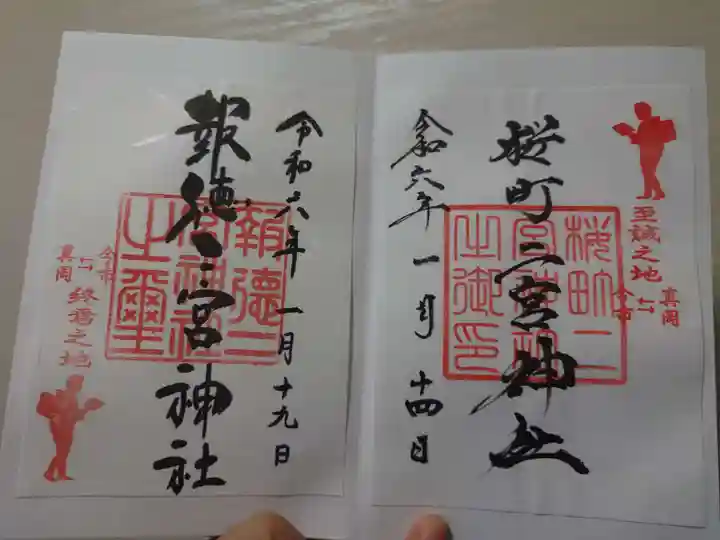 至誠之地
真岡
⇆
今市
桜町二宮神社
桜町二
宮神社
之御印
令和六年 一月 十四日
令和六年 一月十九日
報徳二宮神社
報德二
宮神社
之璽
今市
⇆
真岡
終焉之地